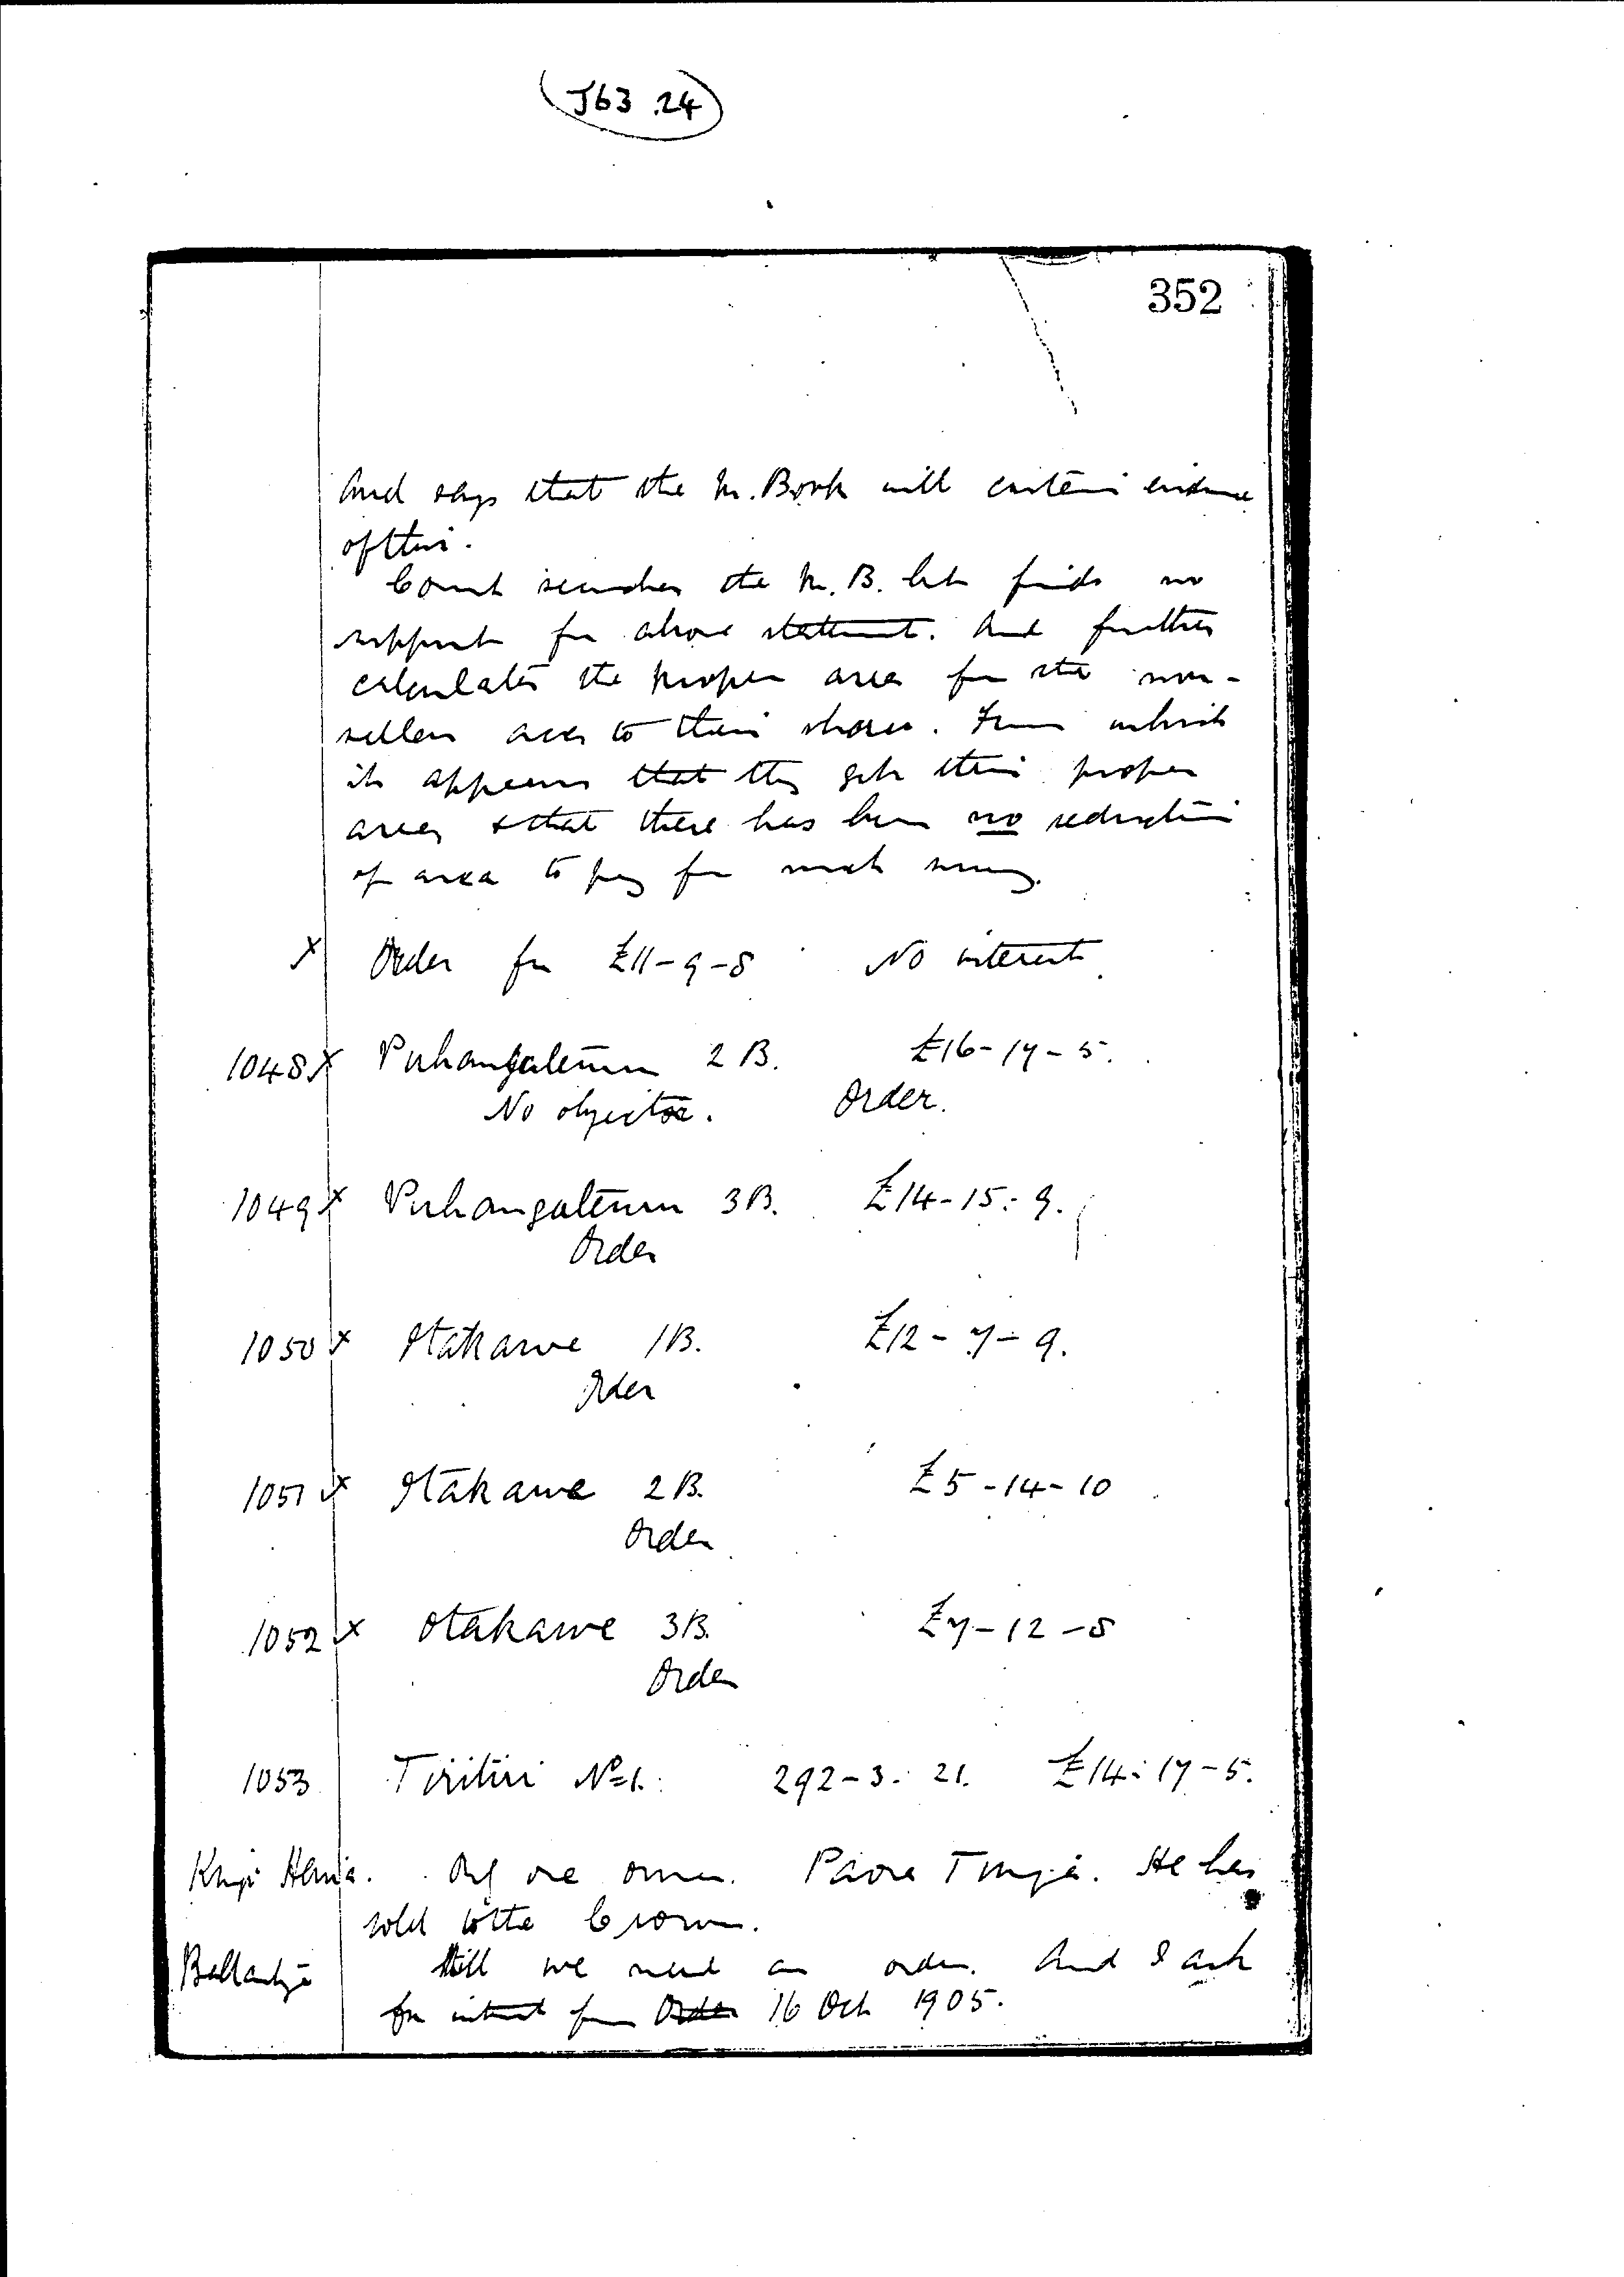 J63.24
352
And says that the M. Book will contain evidence
of this.
Court searches the M.B. but finds no
support for above statement. And further
calculates the proper area for the non-
sellers acc to their shares. From which
it appears that they get their proper
area, & that there has been no reduction
of area to pay for such survey.
X Order for £11-9-8 No interest.
1048 X Puhangateruru 2B. £16-17-5.
No objector. Order.
1049 X Puhangateruru 3B. £14-15-9.
Order
1050 X Otakawe 1B. £12-7-9.
Order
1051 X Otakawe 2B. £5-14-10
Order
1052 X Otakawe 3B. £7-12-8
Order
1053 Tiritiri No 1. 292-3-21. £14-17-5.
Only one owner. Paora He has
sold to the Crown.
Still we need an order. And I ask
for interest from Order 16 Oct 1905.